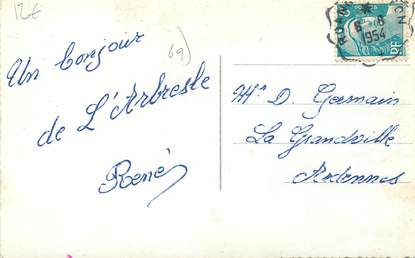 12€
69)
Un bonjour
de L'Arbresle
René
Mr D. Germain
La Grandville
Ardennes
6-8
1954